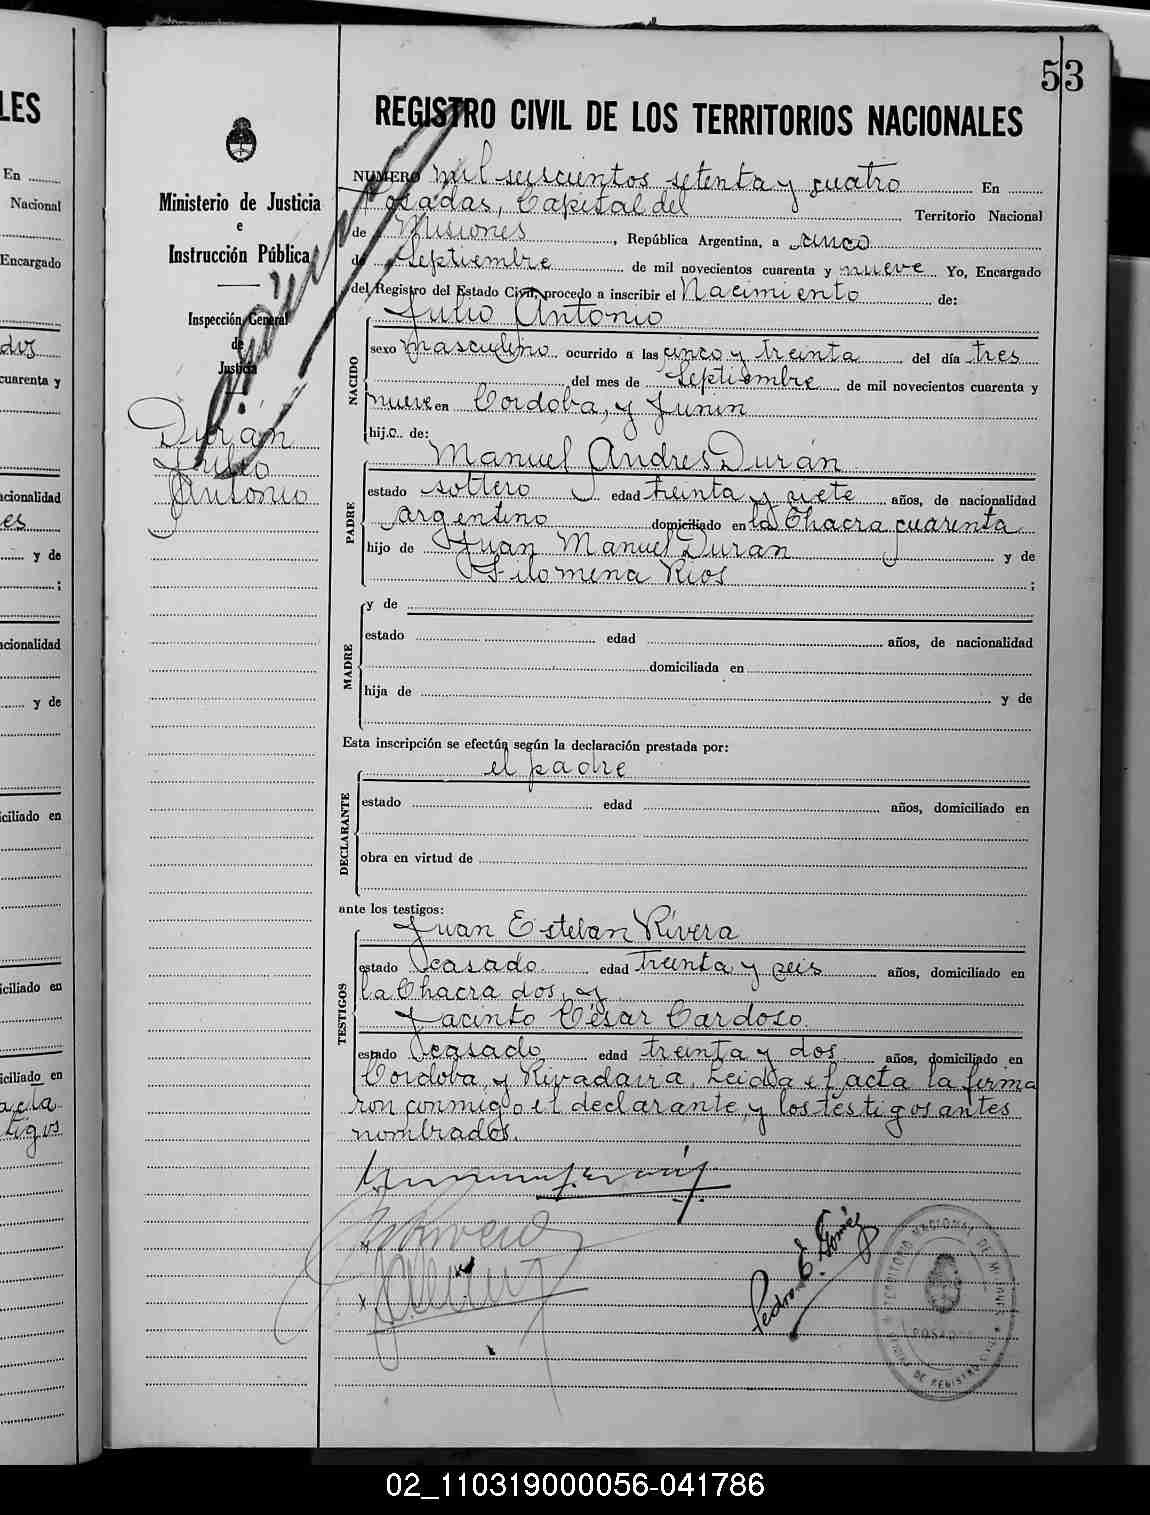 53
REGISTRO CIVIL DE LOS TERRITORIOS NACIONALES
Ministerio de Justicia
e
Instrucción Pública
Inspección General
de
Justicia
Durán
Julio
Antonio
NUMERO mil seiscientos setenta y cuatro En
Posadas, Capital del Territorio Nacional
de Misiones, República Argentina, a cinco
de Septiembre de mil novecientos cuarenta y nueve Yo, Encargado
del Registro del Estado Civil, procedo a inscribir el Nacimiento de:
Julio Antonio
NACIDO
sexo masculino ocurrido a las cinco y treinta del día tres
del mes de Septiembre de mil novecientos cuarenta y
nueve en Cordoba, y Junin
hij.o. de:
Manuel Andres Durán
PADRE
estado soltero edad treinta y siete años, de nacionalidad
argentino domiciliado en la Chacra cuarenta
hijo de Juan Manuel Duran y de
Filomena Rios ;
MADRE
y de
estado edad años, de nacionalidad
domiciliada en
hija de y de
Esta inscripción se efectúa según la declaración prestada por:
el padre
DECLARANTE
estado edad años, domiciliado en
obra en virtud de
ante los testigos:
Juan Esteban Rivera
TESTIGOS
estado casado edad treinta y seis años, domiciliado en
la Chacra dos, y
Jacinto César Cardoso
estado casado edad treinta y dos años, domiciliado en
Cordoba, y Rivadavia. Leida el acta la firma
ron conmigo el declarante, y los testigos antes
nombrados.
Pedro E. Gómez
TERRITORIO NACIONAL DE MISIONES
POSADAS
LES
En
Nacional
Encargado
cuarenta y
acionalidad
y de
;
acionalidad
y de
iciliado en
iciliado en
iciliado en
acta
tigos
02_110319000056-041786